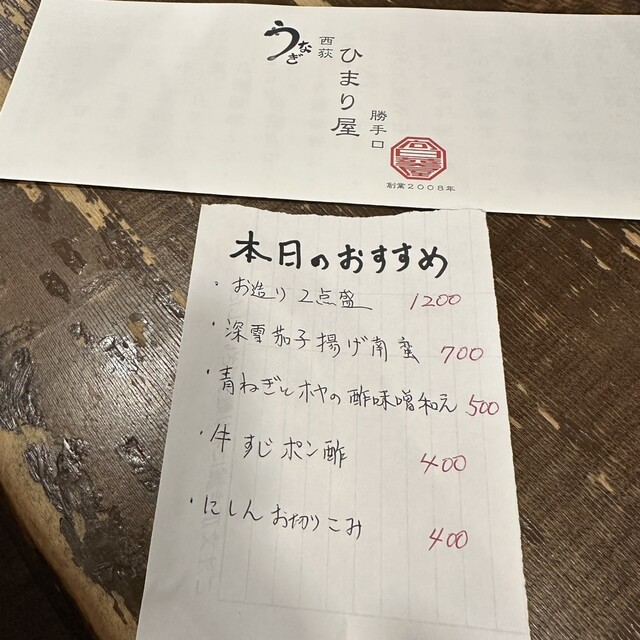 うなぎ
西荻
ひまり屋
勝手口
創業2008年
本日のおすすめ
・お造り 2点盛 1200
・深雪茄子揚げ南蛮 700
・青ねぎとホヤの酢味噌和え 500
・牛すじポン酢 400
・にしんお切りこみ 400